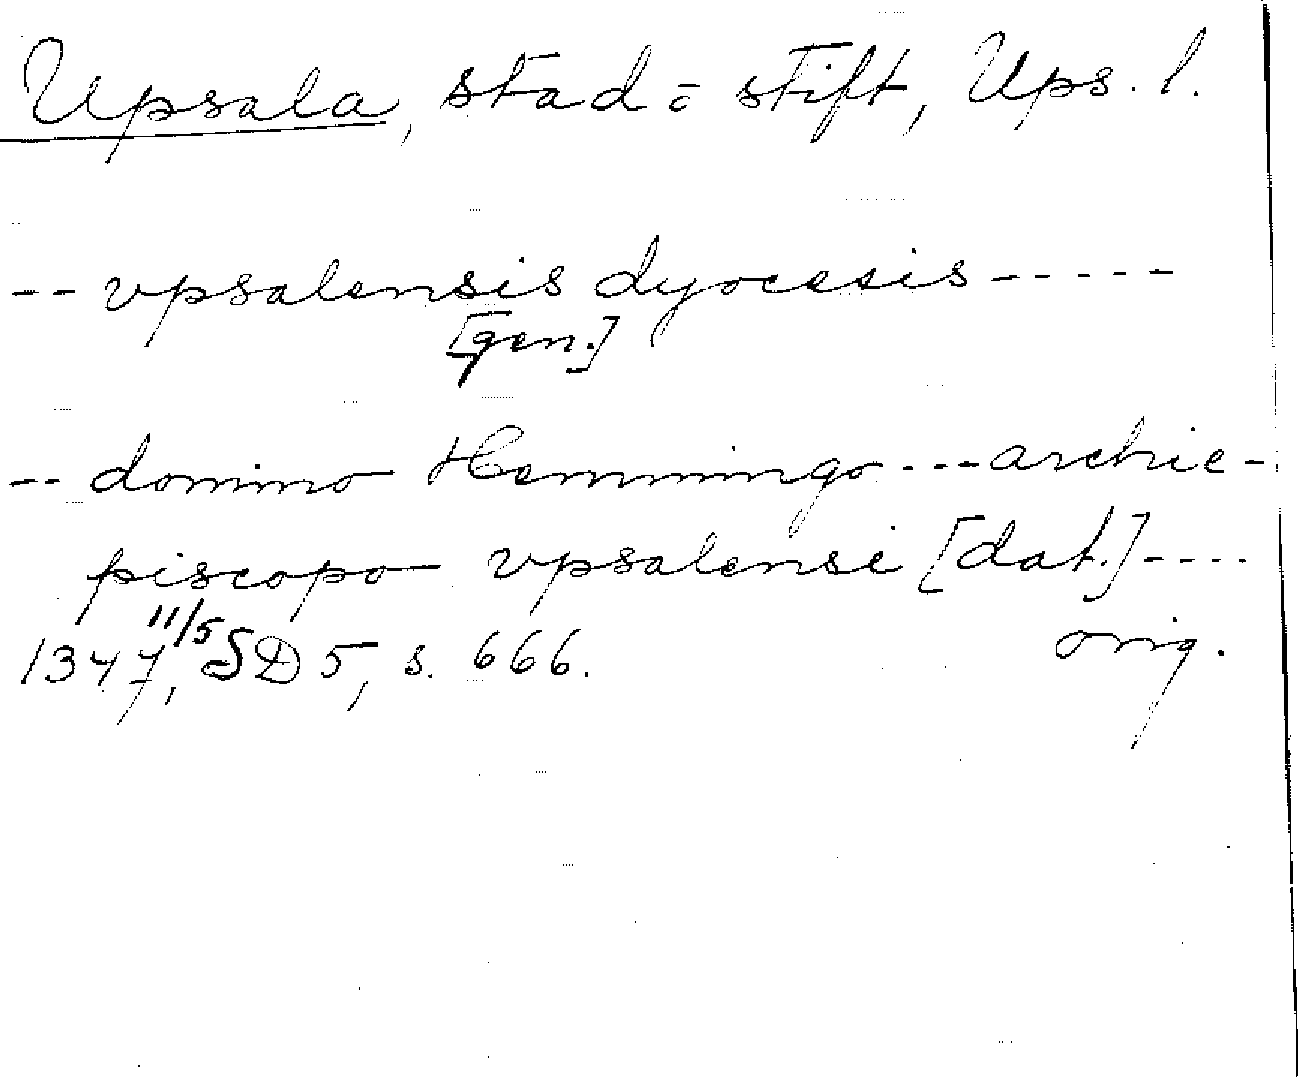 Upsala, stad o stift, Ups. l.
-- vpsalensis dyocesis -----
[gen.]
-- domino Hemmingo --- archie-
piscopo vpsalensi [dat.] ----
1347, 11/5 SD 5, s. 666. orig.